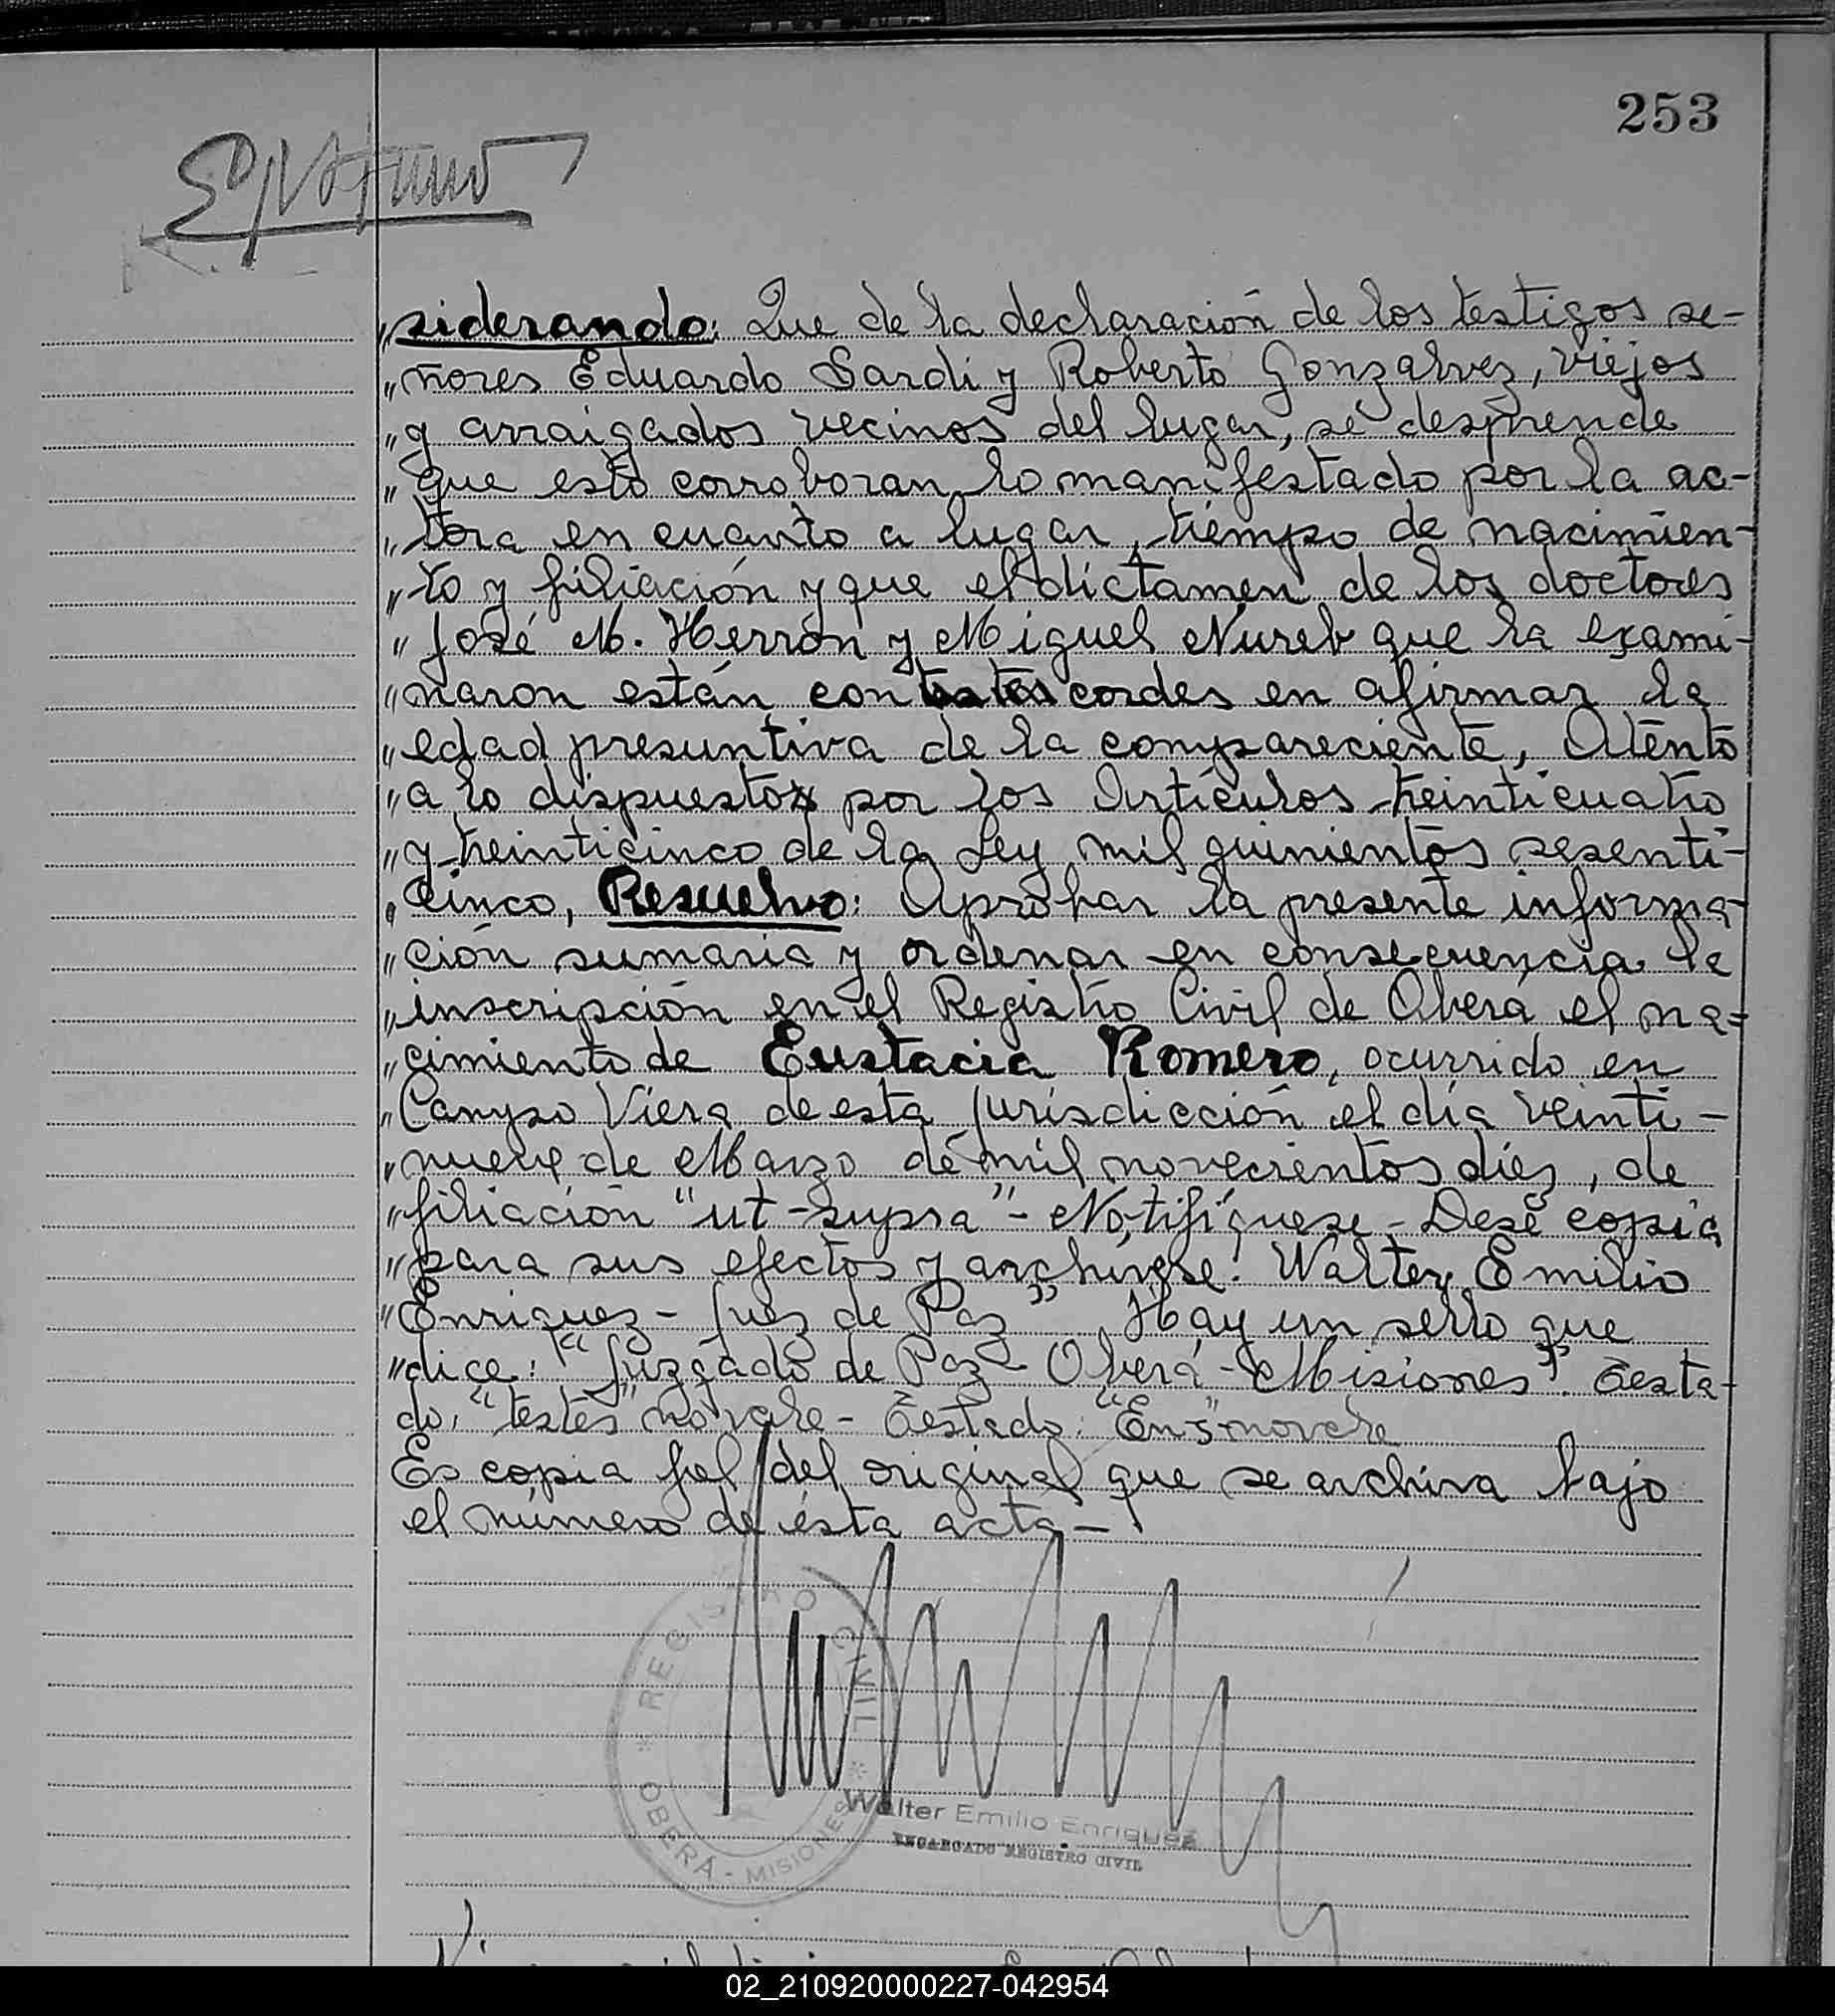 253
"siderando: Que de la declaración de los testigos se-
"ñores Eduardo Sardi y Roberto Gonzalvez, viejos
"y arraigados vecinos del lugar, se desprende
"que esto corroboran lo manifestado por la ac-
"tora en cuanto a lugar, tiempo de nacimien-
"to y filiación y que el dictamen de los doctores
"José M. Herrón y Miguel Nureb que la exami-
"naron están con cordes en afirmar la
"edad presuntiva de la compareciente, Atento
"a lo dispuesto por los Artículos treinticuatro
"y treinticinco de la Ley mil quinientos sesenti-
"cinco, Resuelvo: Aprobar la presente informa-
"ción sumaria y ordenar en consecuencia la
"inscripción en el Registro Civil de Oberá el na-
"cimiento de Eustacia Romero, ocurrido en
"Campo Viera de esta Jurisdicción el día veinti-
"nueve de Marzo de mil novecientos diez, de
"filiación "ut-supra"- Notifíquese - Desé copia
"para sus efectos y archívese. Walter Emilio
"Enriquez - Juez de Paz" Hay un sello que
"dice: "Juzgado de Paz - Oberá - Misiones". Testa-
do: "testes" no vale - Testado: "En s" no vale
Es copia fiel del original que se archiva bajo
el número de ésta acta -
REGISTRO CIVIL
OBERÁ - MISIONES
Walter Emilio Enriquez
ENCARGADO REGISTRO CIVIL
02_210920000227-042954